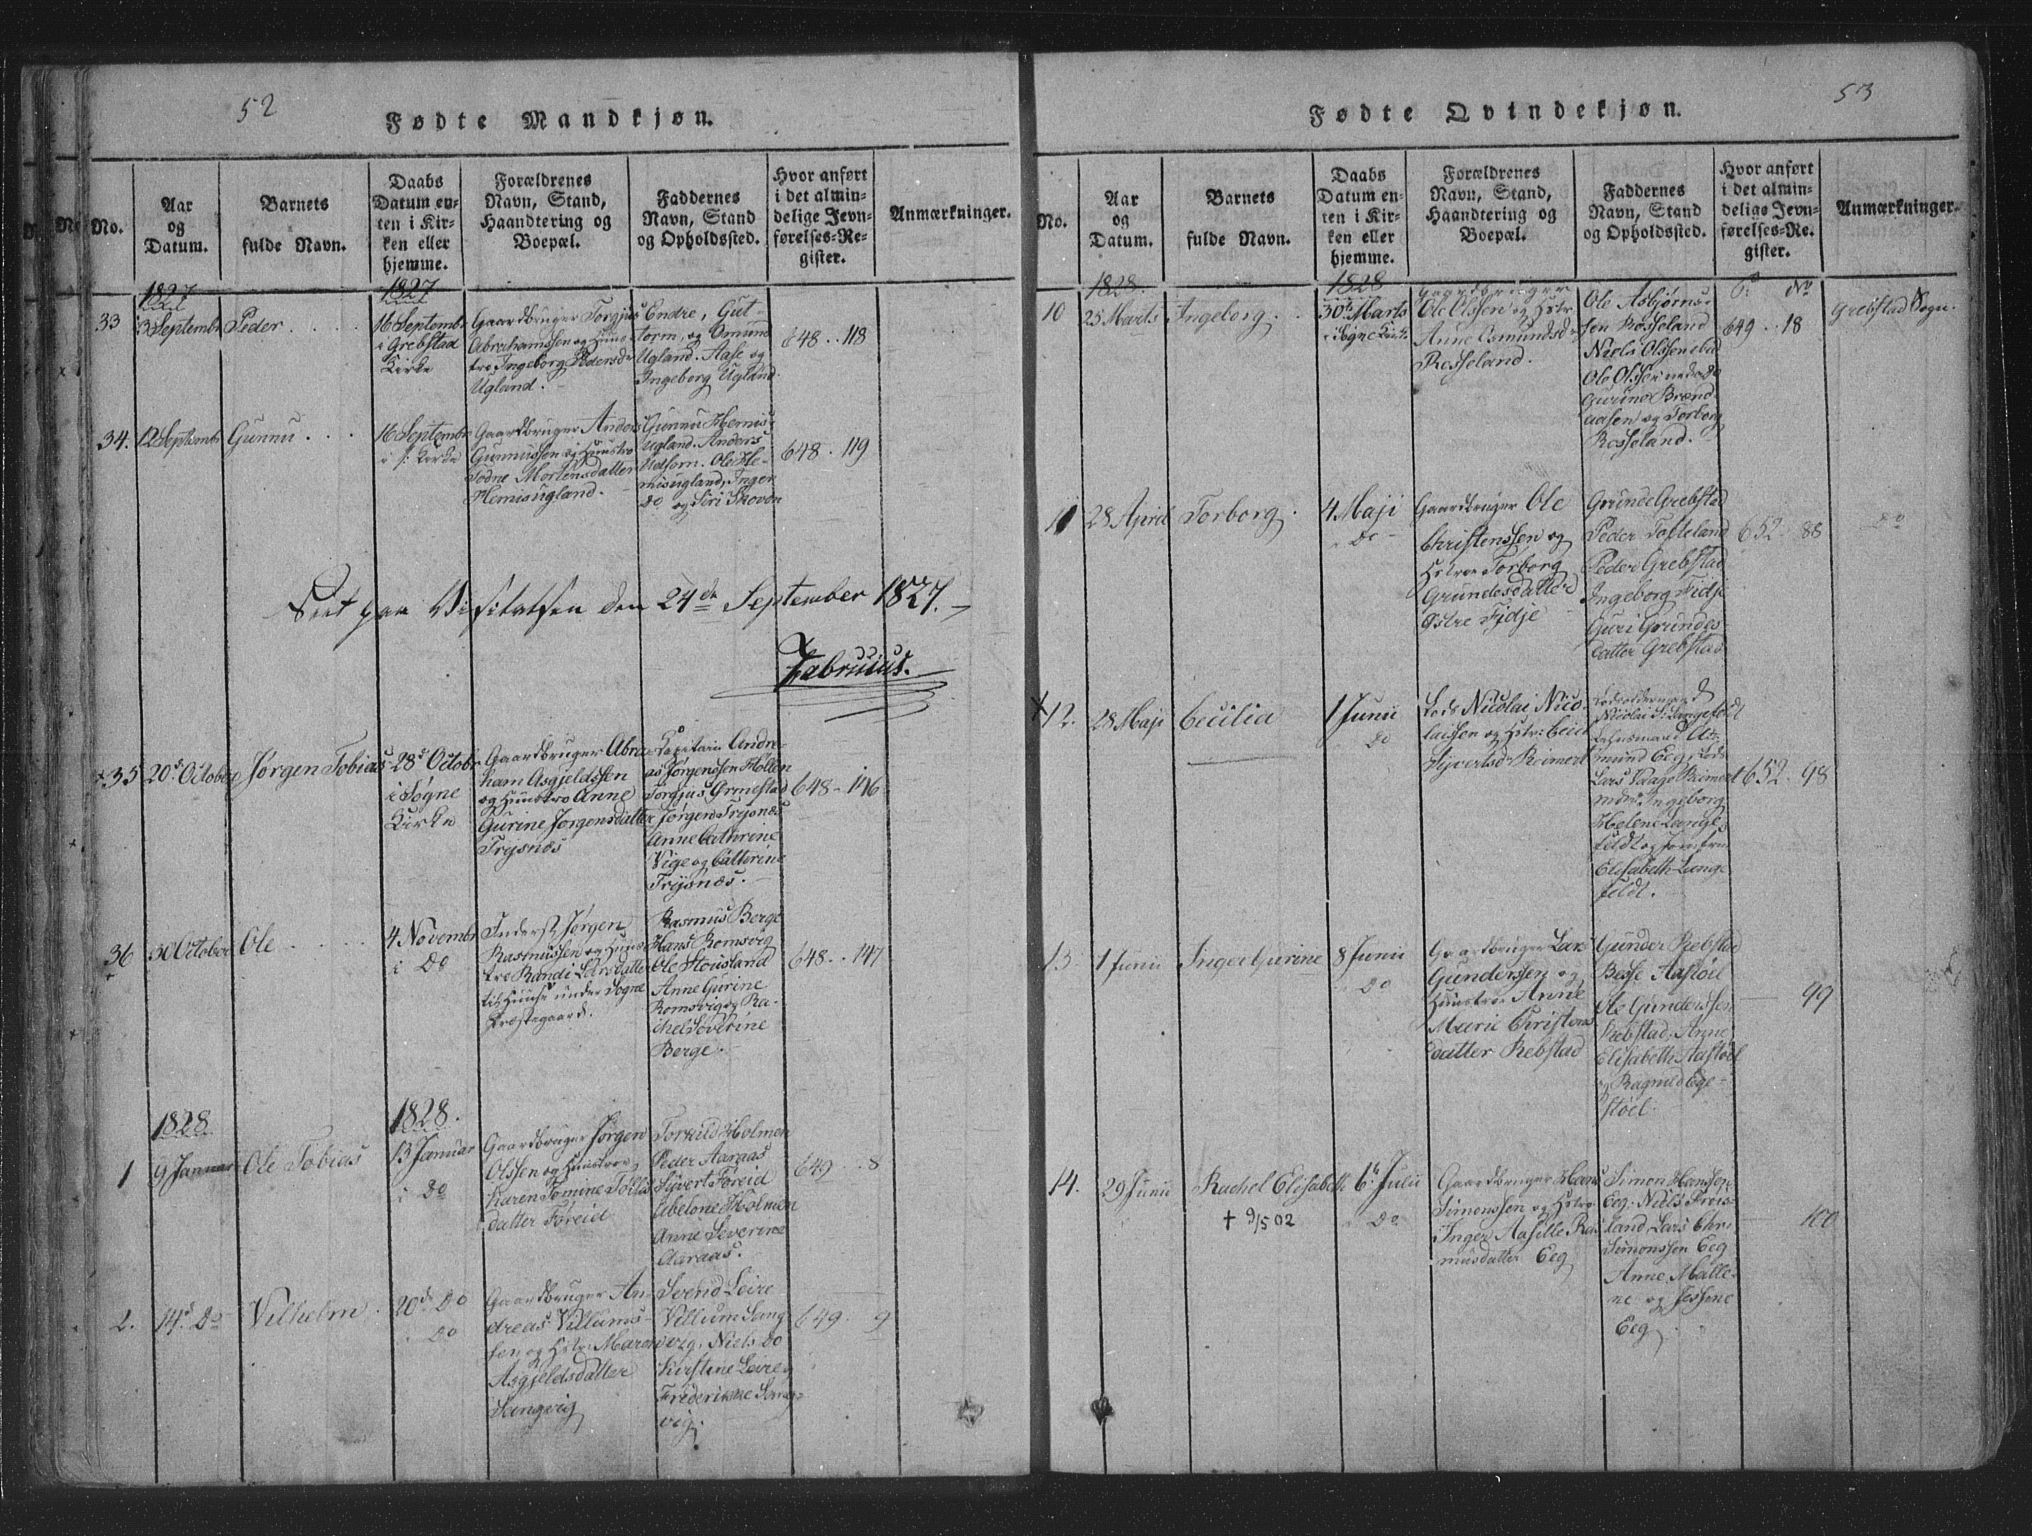 52
Fødte Mandkjøn.
No.
Aar
og
Datum.
Barnets
fulde Navn.
Daabs
Datum en-
ten i Kir-
ken eller
hjemme.
Forældrenes
Navn, Stand,
Haandtering og
Boepæl.
Faddernes
Navn, Stand
og Opholdssted.
Hvor anført
i det almin-
delige Jevn-
førelses-Re-
gister.
Anmærkninger.
1827
1827
33
3 Septembr
Peder
16 Septembr
i Grebstad
Kirke
Gaardbruger Torgjus
Abrahamssen og Huus-
tro Ingeborg Pedersd
Ugland.
Endre, Gut-
torm, og Omund
Ugland. Aase og
Ingeborg Ugland
648 .. 118
34.
12 Septembr
Gunnu
16 Septembr
Kirke
Gaardbruger Anders
Gunnussen og Huustro
Mortensdatter
Hemisugland.
Gunnu Hemis-
Ugland. Anders
Udsorn. Ole He-
misugland, Inger
Do og Siri Skoven
648 . 119
Seet paa Visitatsen den 24de September 1827.
Fabricius.
35
20de October
Jørgen Tobias
28de Octobr
i Søgne
Kirke
Gaardbruger Abra-
ham Asgjeldssen
og Huustro Anne
Gurine Jørgensdatter
Trysnes
Capitain Andre-
as Jørgenssen Hollen
Torgjus Ormestad
Jørgen Trysnes
Anne Cathrine
Vige og Cathrine
Trysnes.
648 - 146
36
30 October
Ole
4 Novembr
i Do
Inderst Jørgen
Rasmussen og Huus-
tro Randi Larsdatter
til Huuse under Søgne
Præstegaard.
Rasmus Berge
Hans Romsvig
Ole Stousland
Anne Gurine
Romsvig og Ra-
chel Severine
Berge.
648 .. 147
1828
1828.
1
9 Januar
Ole Tobias
13 Januar
i Do
Gaardbruger Jørgen
Olssen og Huustroe
Karen Tomine
datter Føreid
Torkild Holmen
Peder Aaraas
Sijvert Føreid
Abelone Holmen
Anne Severine
Aaraas.
649 .. 8
2.
14d Do
Vilhelm
20de Do
Do
Gaardbruger An-
dreas Villums-
sen og Hstr: Maren
Asgjeldsdatter
Langvig
Svend Leire
Villum Lang-
vig, Niels Do
Kirstine Leire
Friderikke Lang-
vig.
649 . 9
53
Fødte Qvindekjøn.
No.
Aar
og
Datum.
Barnets
fulde Navn.
Daabs
Datum en-
ten i Kir-
ken eller
hjemme.
Forældrenes
Navn, Stand,
Haandtering og
Boepæl.
Faddernes
Navn, Stand
og Opholdssted.
Hvor anført
i det almin-
delige Jevn-
førelses-Re-
gister.
Anmærkninger.
1828
1828
10
25 Marts
Ingeborg
30te Marts
i Søgne Kirke
Gaardbruger
Ole Olssen og Hstr
Anne Osmundsd
Rosseland.
Ole Asbjørns-
sen Rosseland
Niels Olssen ibid
Ole Olssen
Gurine Brænd-
aasen og Torborg
Rosseland.
649 .. 18
Grebstad Sogn.
11
28 April
Torborg
4 Maji
Do
Gaardbruger Ole
Christenssen og
Hstroe Torborg
Grundesdatter
Østre Fidje
Grunde Grebstad
Peder Tofteland
Peder Grebstad
Ingeborg Fidje
Guri Grundes
datter Grebstad
652 . 88
Do
12.
28 Maji
Cecilia
1 Junii
Do
Lods Nicolai Nico-
laissen og Hstr:
Sijvertsd Reimert
Lodsoldermand
Nicolai S: Langefeldt
Lehnsmand
mund Eeg, Lods
Lars Vaage Reimert
Ingeborg
Helene Lange-
feldt og Jomfrue
Elisabeth Lange-
feldt.
652 . 98
13
1 Junii
Inger Gurine
8 Junii
Do
Gaardbruger Lars
Gunderssen og
Huustroe Anne
Marie Christens
datter Rebstad
Gunder Rebstad
Besse Aastøel
Ole Gunderssen
Rebstad, Anne
Elisabeth Aastøel
og Ragnild Ege-
støel.
99
14.
29 Junii
Rachel Elisabeth
† 9/5 02
6te Julii
Do
Gaardbruger Hans
Simonssen og Hstroe
Inger Aasille Ras-
musdatter Eeg
Simon Hanssen
Eeg. Niels
land Lars
Simonssen Eeg
Anne Malle-
ne og
Eeg
100